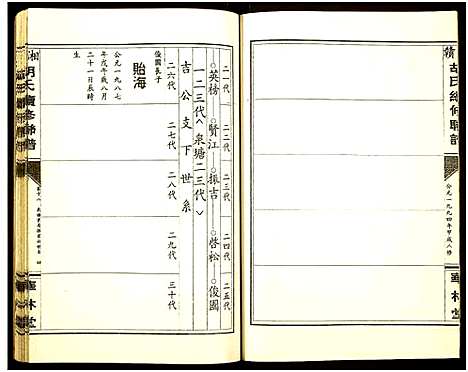 贛胡氏總修聯譜
公元一九九四年甲戌八修
華林堂
二一代
二二代
二三代
二四代
二五代
英榜——賢江——振吉——啓松——俊國
一二三代︿泉塘二三代﹀
吉公支下世系
二六代
二七代
二八代
二九代
三十代
貽海
俊國長子
公元一九八七
年戊年歲八月
二十一日辰時
生
湘胡氏
譜
華林堂